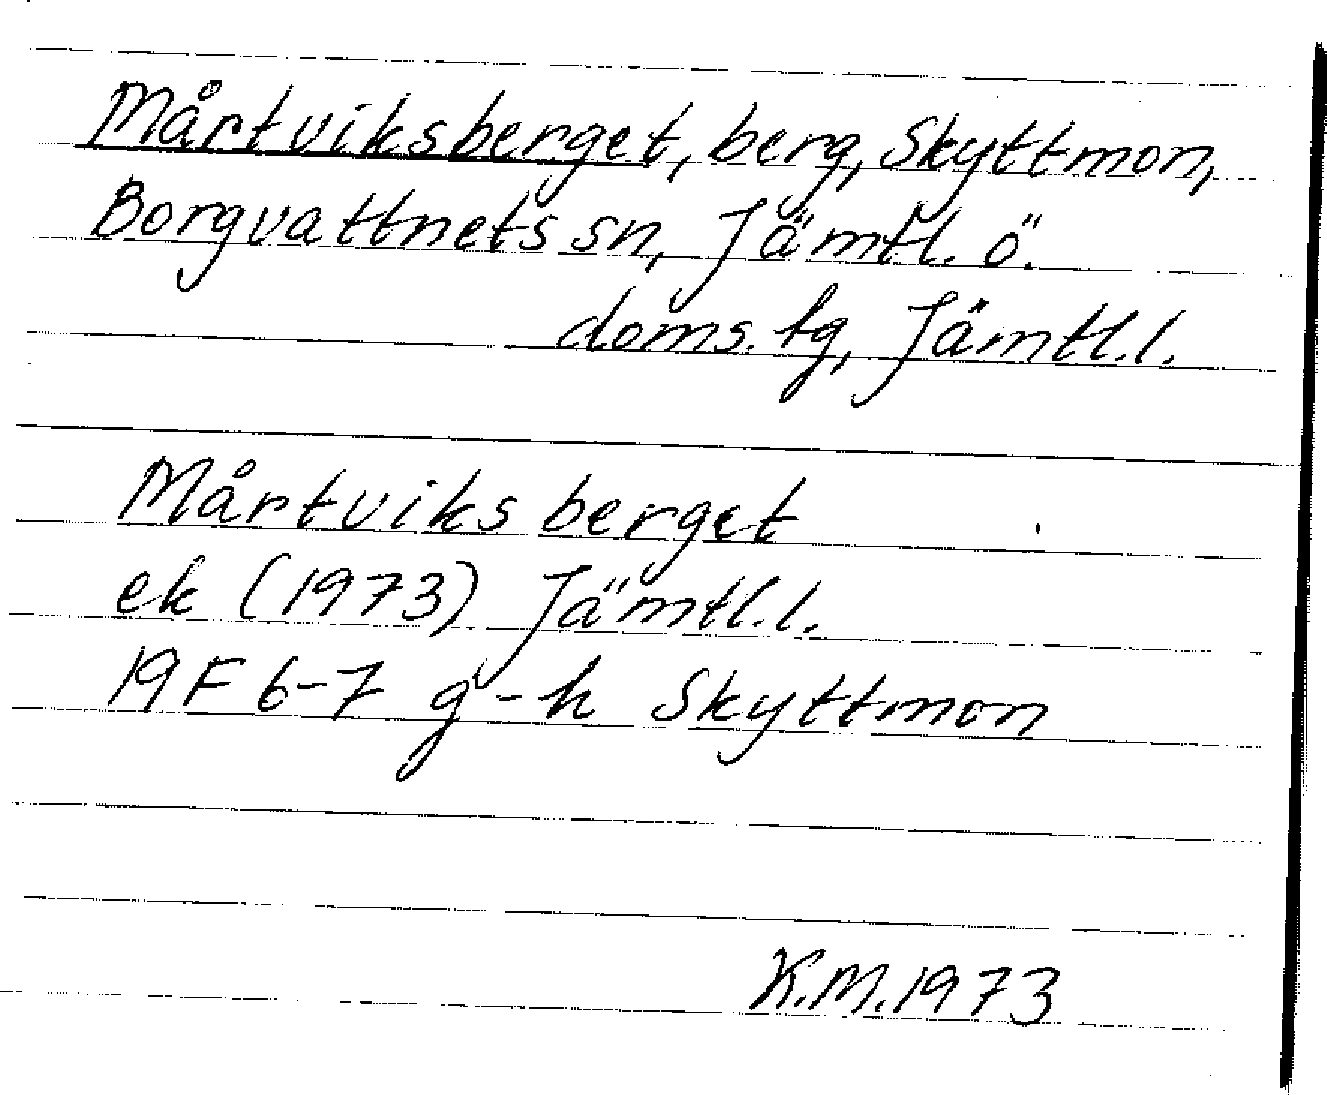 Mårtviksberget, berg, Skyttmon,
Borgvattnets sn, Jämtl. ö.
doms. tg, Jämtl.l.
Mårtviksberget
ek (1973) Jämtl.l.
19F 6-7 g-h Skyttmon
K.M.1973